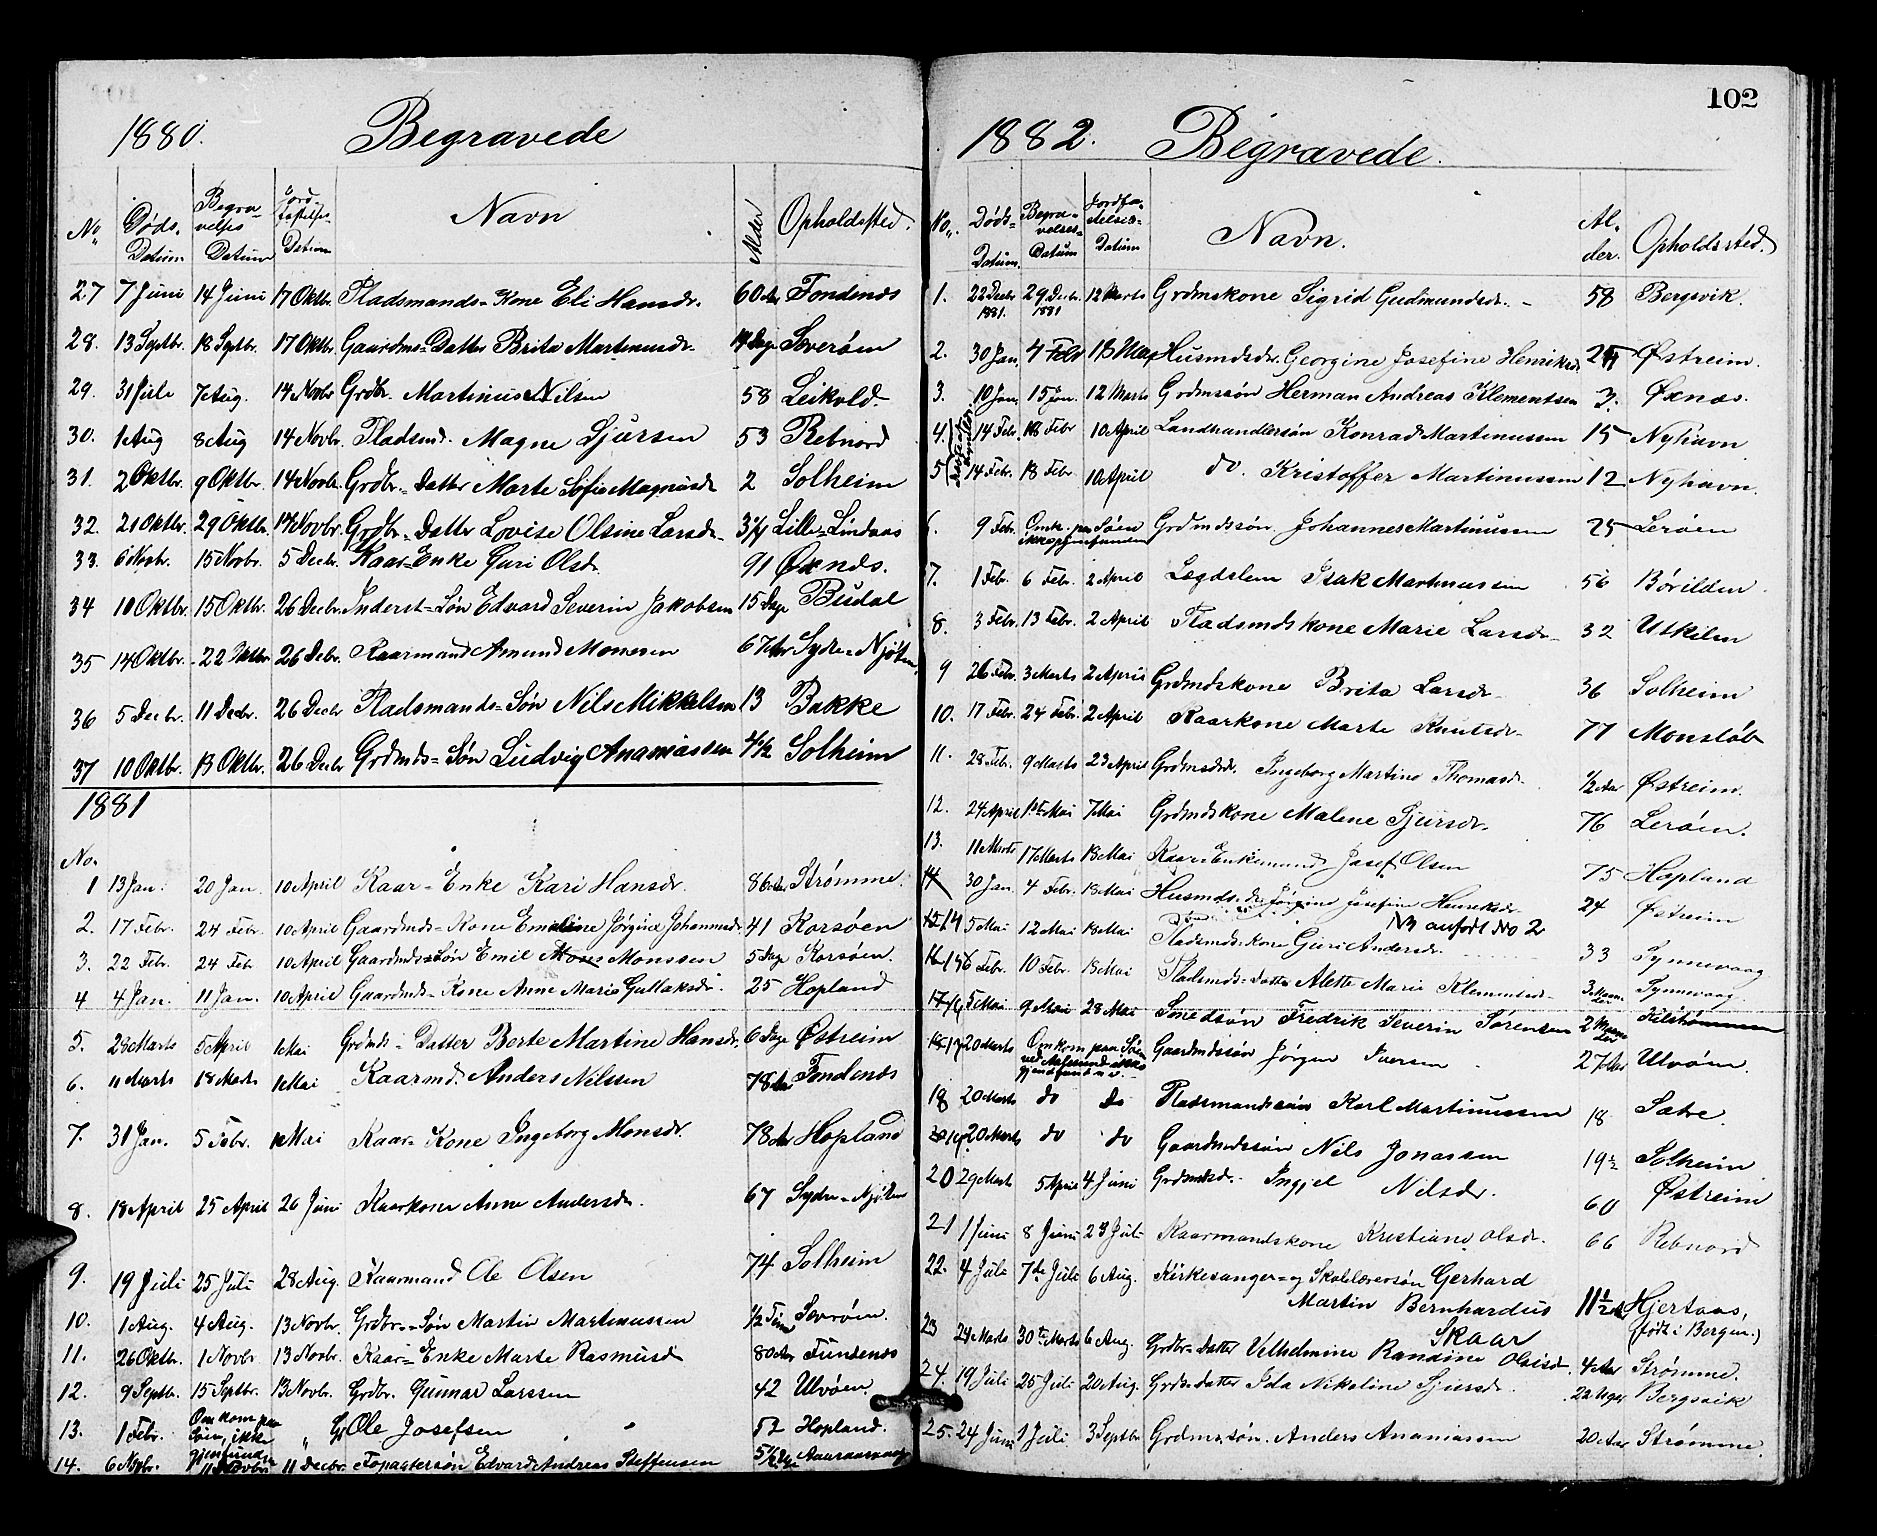 1880. Begravede
No Døds. Datum Begravelses Datum Jordfæstelses Datum Navn Alder Opholdssted.
27 7 Juni 14 Juni 17 Oktbr. Pladsmands-Kone Eli Hansdr. 60 Aar Fondenæs
28. 13 Septbr. 18 Septbr. 17 Oktbr. Gaardms-Datter Brita Martinusdr. Dage Sæverøen
29. 31 Juli 7 Aug. 14 Novbr Grdbr. Martinus Nilsen 58 Leikvold.
30. 1 Aug 8 Aug 14 Novbr. Pladsmd. Magne Sjursen 53 Rebnord
31. 2 Oktbr. 9 Oktbr. 14 Novbr. Grdbr.-Datter Marte Sofie Magnusdr 2 Solheim
32. 21 Oktbr. 29 Oktbr. 14 Novbr. Grdbr-Datter Lovise Olsine Larsdr. 3/4 Lille-Lindaas
33. 6 Novbr. 15 Novbr. 5 Decbr. Kaar-Enke Guri Olsdr. 91 Øxnæs.
34 10 Oktbr. 15 Oktbr. 26 Decbr. Inderst-Søn Edvard Severin Jakobsen 15 Dage Budal
35 14 Oktbr. 22 Oktbr 26 Debr. Kaarmand Amund Monsen 67 Aar Sydre-Njøten
36 5 Decbr. 11 Decbr. 26 Decbr Pladsmands-Søn Nils Mikkelsen 13 Bakke
37 10 Oktbr. 13 Oktbr. 26 Decbr Grdmds-Søn Ludvig Ananiassen 4 1/2 Solheim
1881
No.
1 13 Jan. 20 Jan. 10 April Kaar-Enke Kari Hansdr. 86 Aar Strømme.
2. 17 Febr. 24 Febr. 10 April Gaardmds-Kone Emeline Jørgine Johannesdr. 41 Korsøen
3. 22 Febr. 24 Febr 10 April Gaardmds-Søn Emil Mons Monssen 5 Dage Korsøen.
4 4 Jan. 11 Jan. 10 April Gaardmds-Kone Anne Marie Gullaksdr. 25 Hopland
5. 23 Marts 5 April 1 Mai Grdmds-Datter Berte Martine Hansdr. 6 Dage Østreim
6. 11 Marts 18 Marts 1 Mai Kaarmd. Anders Nilssen 78 Aar Fondenæs
7. 31 Jan. 5 Febr. 1 Mai Kaar-Kone Ingeborg Monsdr. 78 Aar Hopland
8. 18 April 25 April 26 Juni Kaarkone Anne Andersdr. 67 Sydre-Njøten
9. 19 Juli 25 Juli 28 Aug. Kaarmand Ole Olsen 74 Solheim
10. 1 Aug. 4 Aug. 13 Novbr. Grdbr.-Søn Martin Martinussen 1/2 Time Sæverøen.
11. 26 Oktbr. 1 Novbr 13 Novbr. Kaar-Enke Marte Rasmusdr 80 Aar Fundenæs
12. 9 Septbr. 15 Septbr. 13 Novbr. Grdbr. Gunnar Larssen 42 Ulvøen
13. 1 Febr. Omkom paa Søen, ikke gjenfunden " Gr Ole Josefsen " 52 Hopland.
14. 6 Novbr. 11 Novbr 11 Decbr. Edvard Andreas Steffensen
102
1882. Begravede.
No. Døds-Datum. Begravelses-Datum Jordfæstelses-Datum Navn. Alder. Opholdssted.
1. 22 Decbr 1881. 29 Decbr. 1881 12 Marts Grdmskone Sigrid Gudmundsdr. 58 Bergsvik.
2. 30 Jan. 4 Febr 18 Mai Husmdsdr. Georgine Josefine Henriksdr. 24 Østreim.
3. 10 Jan. 15 Jan. 12 Marts Grdmssøn Herman Andreas Klementsen 3. Øxnæs.
4. 14 Febr. 18 Febr 10 April Landhandlersøn Konrad Martinussen 15 Nyhavn
5 14 Febr. 18 Febr. 10 April do. Kristoffer Martinussen 12 Nyhavn.
6. 9 Febr. Omk. paa Søen ikke gjenfunden Grdmdssøn. Johannes Martinussen 25 Lerøen
7. 1 Febr. 6 Febr. 2 April Lægdslem Isak Martinussen 56 Børilden.
8. 3 Febr. 13 Febr. 2 April Pladsmdskone Marie Larsdr. 32 Utkilen
9 26 Febr. 3 Marts 2 April Grdmdskone Brita Larsdr. 36 Solheim
10. 17 Febr. 24 Febr. 2 April Kaarkone Marte Knutsdr. 77 Monsløb
11. 28 Febr. 9 Marts 23 April Grdmsdr. Ingeborg Martine Thomasdr. 1/2 Aar Østreim.
12. 24 April 1ste Mai 7 Mai Grdmdskone Malene Sjursdr. 76 Lerøen.
13. 11 Marts 17 Marts 18 Mai Kaar-Enkemand Josef Olsen 75 Hopland
14 30 Jan. 4 Febr. 18 Mai Husmds.dr. Jørgine Josefine Henriksdr. 24 Østreim
NB anført No 2
15 14 5 Mai 12 Mai 18 Mai Pladsmdskone Guri Andersdr. 33 Synnevaag
16 15 6 Febr. 10 Febr. 18 Mai Pladsmds-Datter Alette Marie Klementsdr. 3 Maaneder Synnevaag.
17 16 5 Mai 9 Mai 28 Mai Smedsøn Fredrik Severin Sørensen 2 Maaneder Kilstrømmen
18 17 20 Marts Omkom paa Søen Gaardmdssøn Jørgen Iversen 27 Aar Ulvøen.
18 20 Marts do do Pladsmandssøn Karl Martinussen 18 Sætre.
19 20 Marts do do Gaardmdssøn Nils Jonassen 19 1/2 Solheim
20 29 Marts 5 April 4 Juni Grdmdsdr. Ingjel Nilsdr. 60 Østreim
21 1 Juni 8 Juni 23 Juli Kaarmandskone Kristiane Olsdr. 66 Rebnord
22. 4 Juli 7de Juli 6 Aug. Kirkesanger- og Skolelærersøn Gerhard
Martin Bernhardus Skaar 11 1/2 Aar Hjertaas, (født i Bergen.)
23 24 Marts 30te Marts 6 Aug. Grdbr-datter Velhelmine Randine Olsdr. 4 Aar Strømme.
24. 19 Juli 25 Juli 20 Aug. Grds.datter Ida Nikoline Sjursdr. 22 Uger Bergsvik
25. 24 Juni 1 Juli 3 Septbr Grdms.søn. Anders Ananiassen 20 Aar Strømme